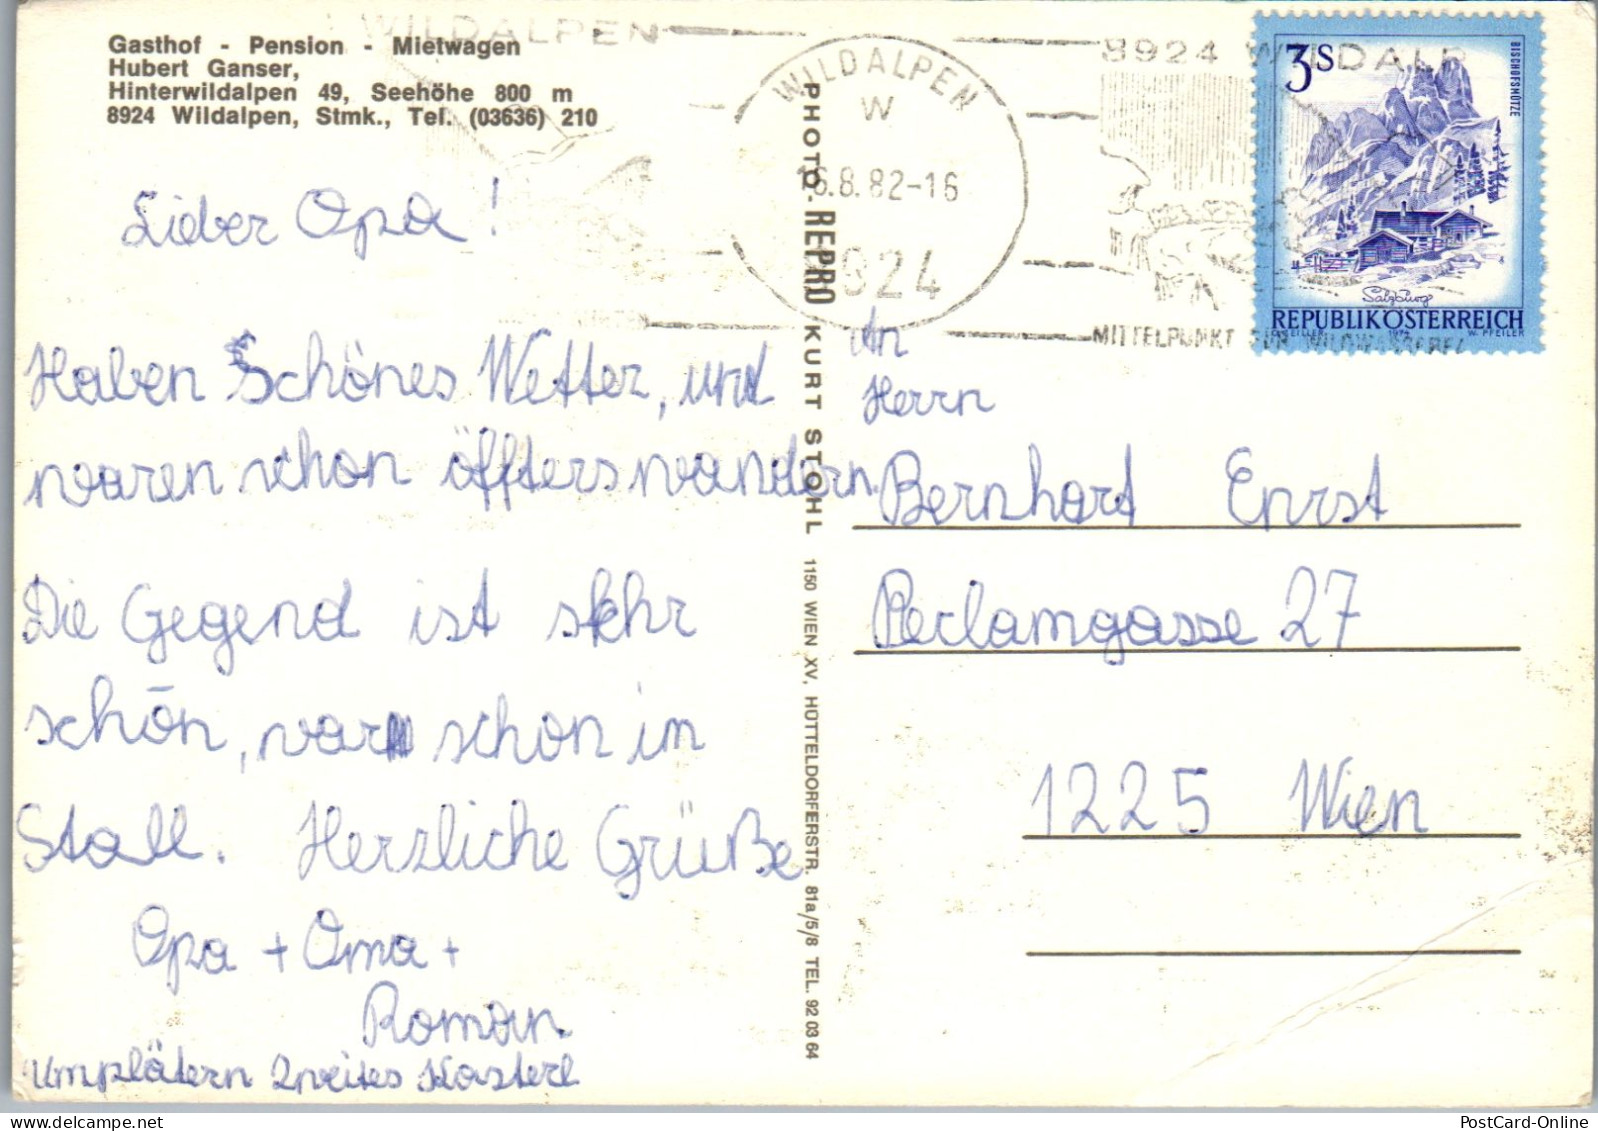 Gasthof - Pension - Mietwagen
Hubert Ganser,
Hinterwildalpen 49, Seehöhe 800 m
8924 Wildalpen, Stmk., Tel. (03636) 210
WILDALPEN
WILDALPEN
W
6.8.82-16
8924
8924 WILDALP
MITTELPUNKT FÜR WILDWASSER
3S
BISCHOFSMÜTZE
Salzburg
REPUBLIK ÖSTERREICH
1974 W. PFEILER
Lieber Opa!
Haben Schönes Wetter, und
waren schon öffters wandern.
Die Gegend ist sehr
schön, war schon im
Stall. Herzliche Grüße
Opa + Oma +
Roman
Umplätern Zweites Kasterl
PHOTO-REPRO KURT STOHL 1150 WIEN XV, HÜTTELDORFERSTR. 81a/5/8 TEL. 92 03 64
An
Herrn
Bernhart Enrst
Perlamgasse 27
1225 Wien
PostCard-Online